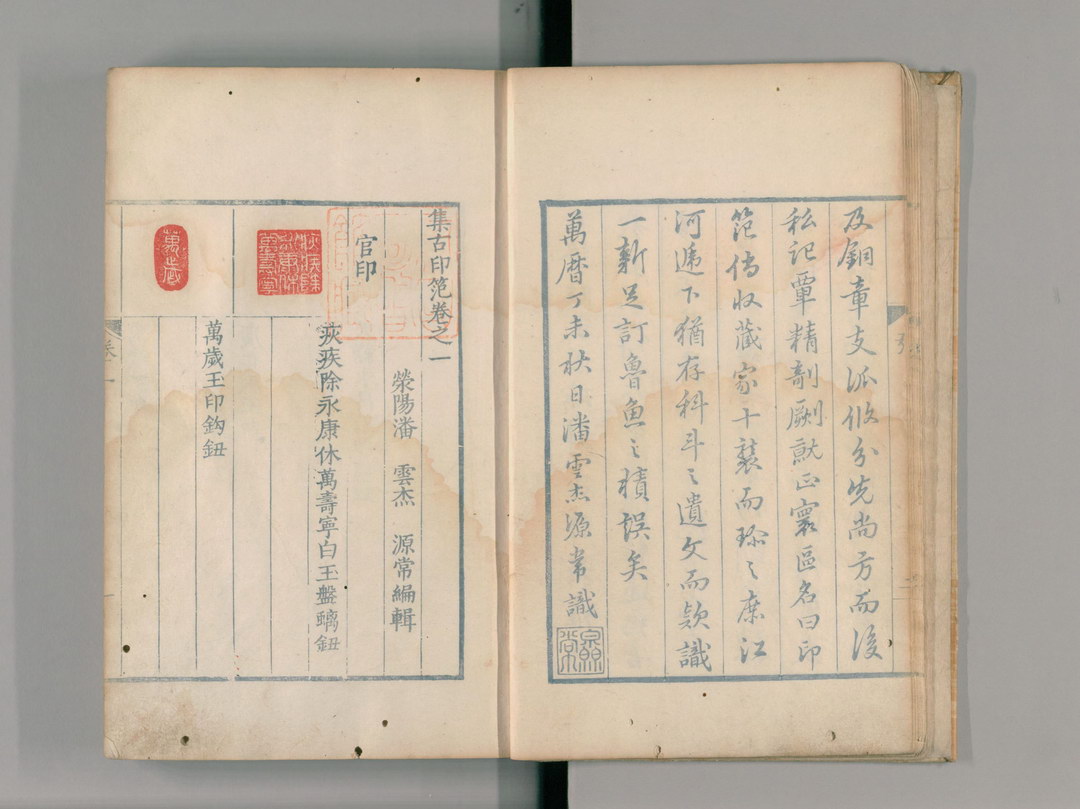 及銅章支派攸分先尚方而後
私記覃精剞劂就正寰區名曰印
範倘收藏家十襲而珍〻庶江
河遞下猶存科斗〻遺文而款識
一新足訂魯魚〻積誤矣
萬曆丁未秋日潘雲杰源常識
源常
集古印范卷之一
滎陽潘 雲杰 源常編輯
官印
疢疾除永康休萬壽寧白玉盤螭鈕
疢疾除永康休萬壽寧
萬歲玉印鈎鈕
萬歲